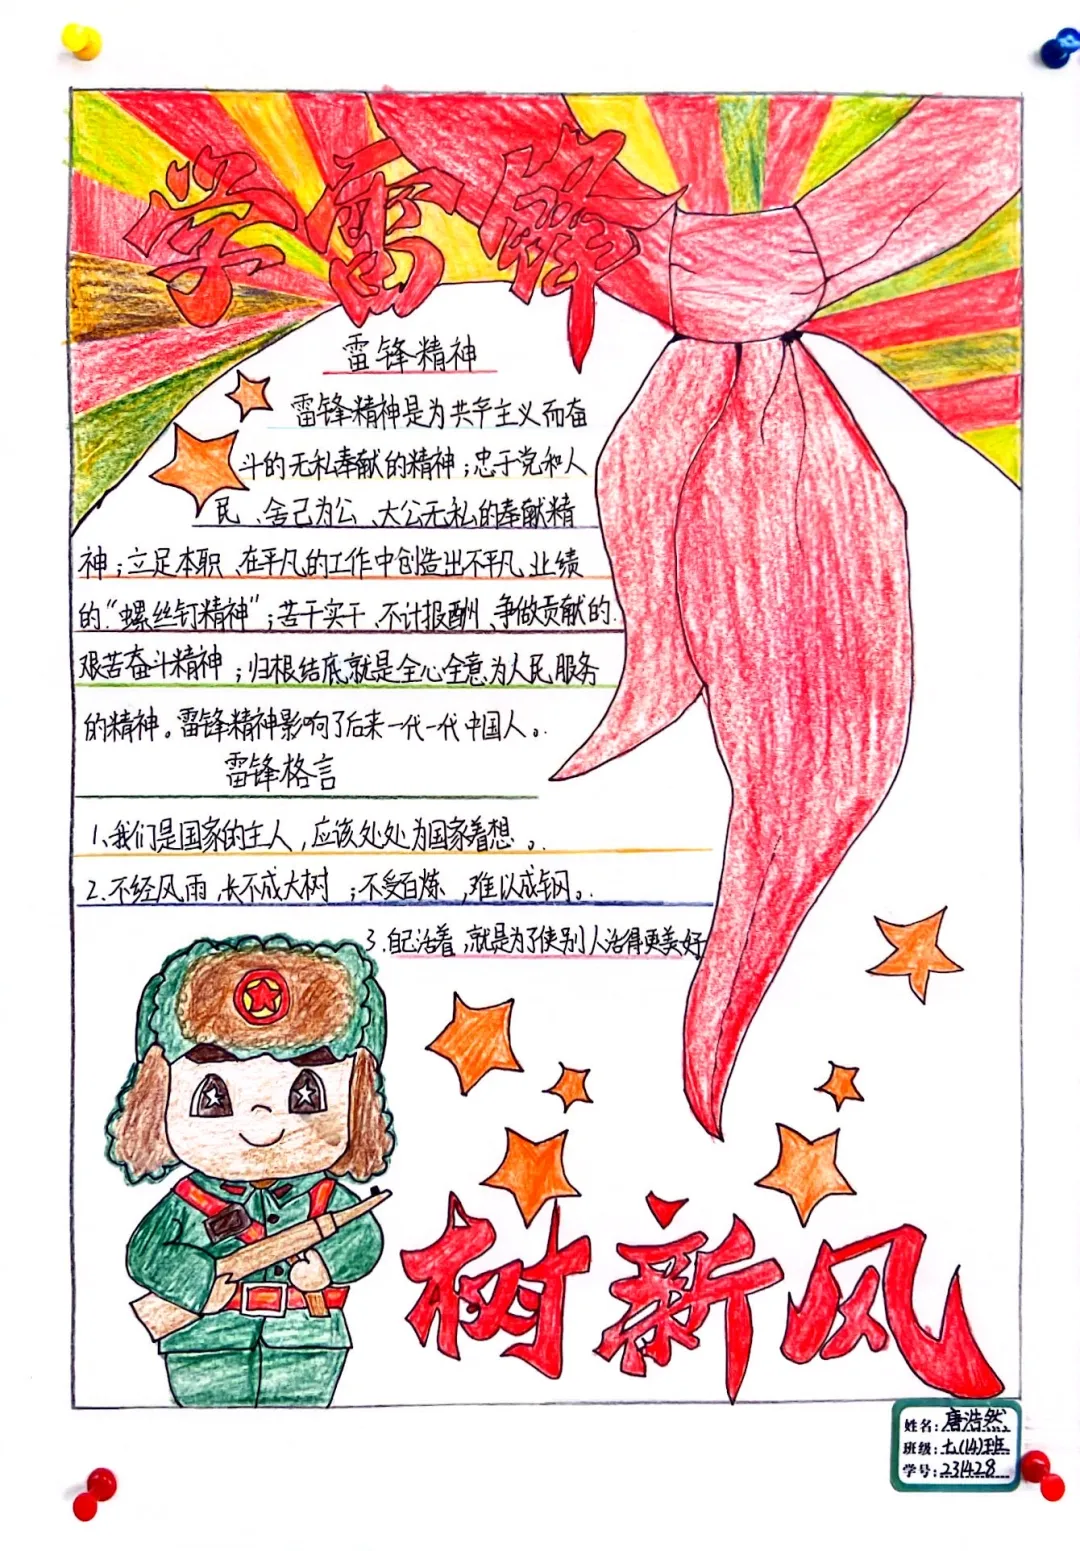 学雷锋
雷锋精神
雷锋精神是为共产主义而奋
斗的无私奉献的精神；忠于党和人
民、舍己为公、大公无私的奉献精
神；立足本职、在平凡的工作中创造出不平凡业绩
的“螺丝钉精神”；苦干实干、不计报酬、争做贡献的
艰苦奋斗精神；归根结底就是全心全意为人民服务
的精神。雷锋精神影响了后来一代一代中国人。
雷锋格言
1、我们是国家的主人，应该处处为国家着想。
2.不经风雨，长不成大树；不受百炼，难以成钢。
3.自己活着，就是为了使别人活得更美好
树新风
姓名：唐浩然
班级：七(14)班
学号：231428